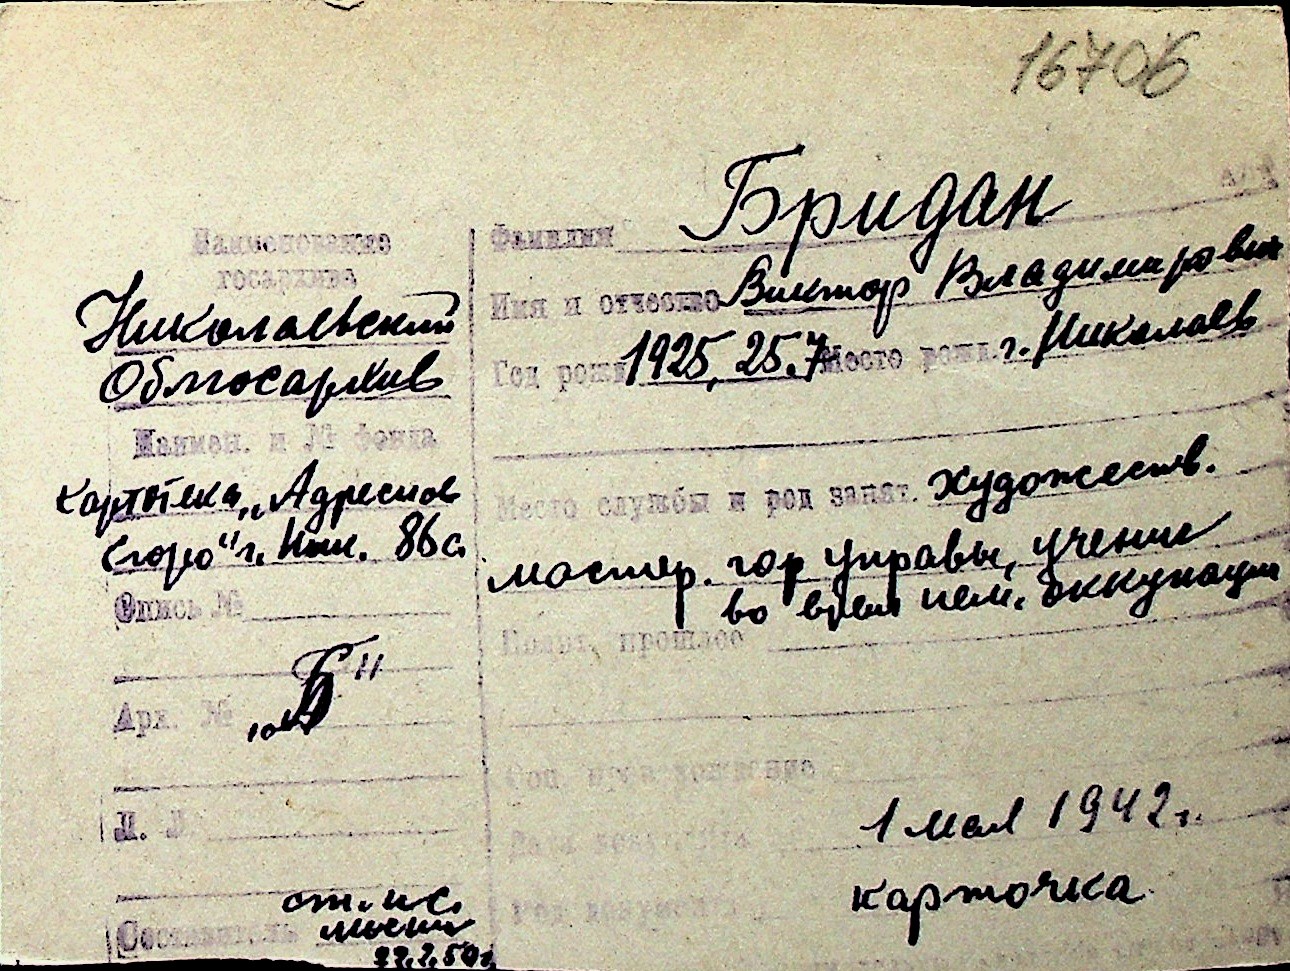 16706
Наименование
госархива
Николаевский
Облгосархив
Наимен. и № фонда
картотека „Адресное
бюро" г. Ник. 86с.
Опись №
Арх. № „Б"
Л. Л.
Составитель ст. н. с.
22.2.50г.
Фамилия Бридан
Имя и отчество Виктор Владимирович
Год рожд. 1925, 25.7 Место рожд. г. Николаев
Место службы и род занят. художеств.
мастер. гор управы, ученик
во время нем. оккупации
Полит. прошлое
Соц. происхождение
Дата документа 1 мая 1942 г.
Род документа карточка